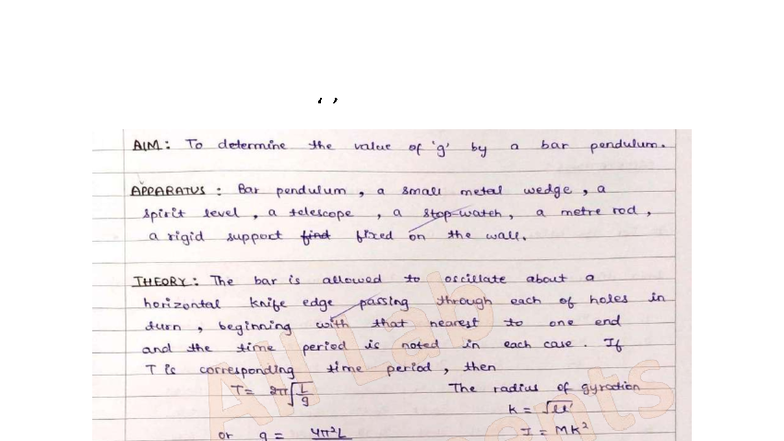 AIM: To determine the value of 'g' by a bar pendulum.
APPARATUS: Bar pendulum, a small metal wedge, a
spirit level, a telescope, a stop-watch, a metre rod,
a rigid support find fixed on the wall.
THEORY: The bar is allowed to oscillate about a
horizontal knife edge passing through each of holes in
turn, beginning with that nearest to one end
and the time period is noted in each case. If
T is corresponding time period, then
T = 2π√(L/g) The radius of gyration
k = √(ll')
or g = 4π²L I = MK²
All Lab